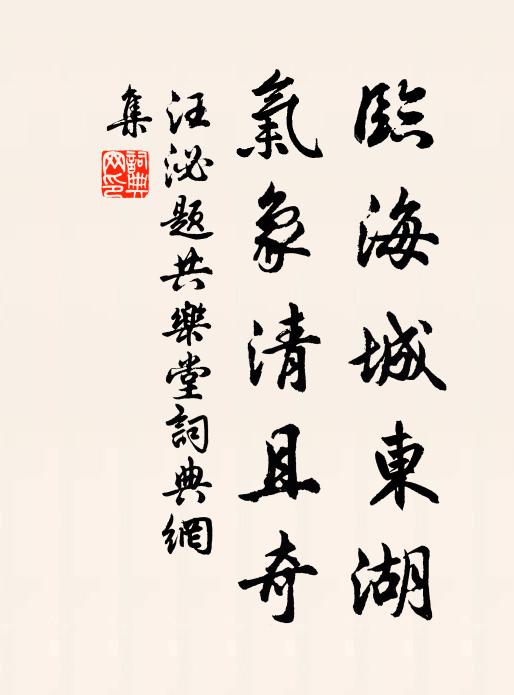 臨海城東湖
氣象清且奇
汪泌題共樂堂詞典網
集
詞典
网印